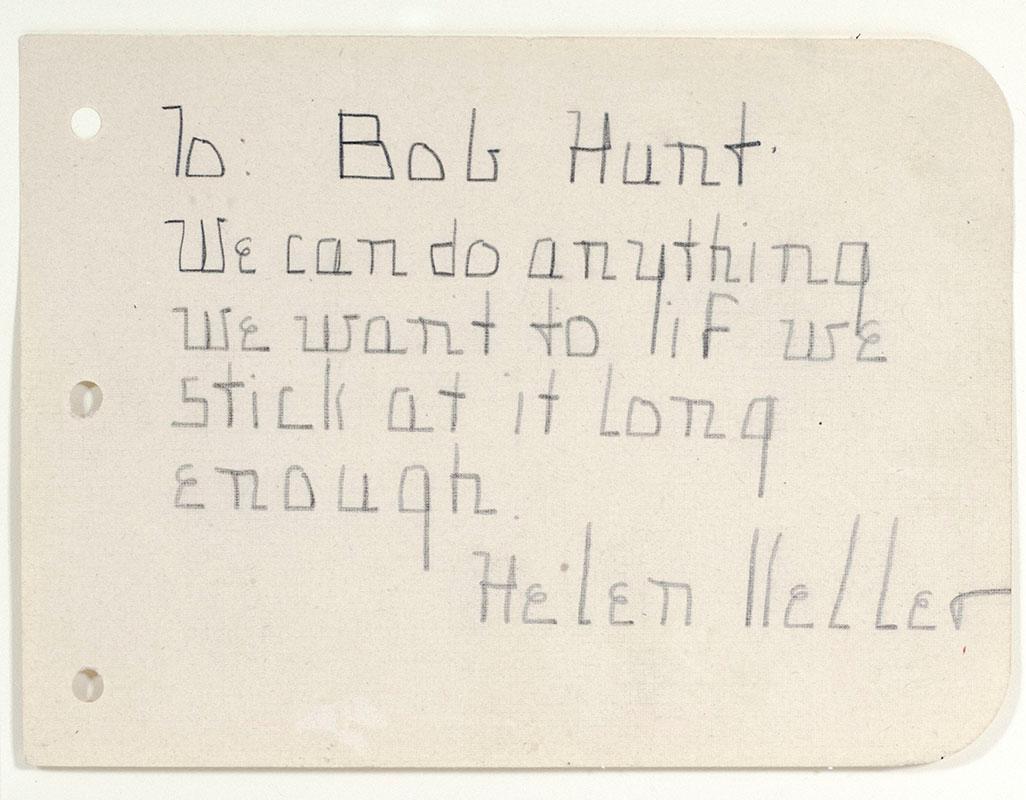 To: Bob Hunt.
We can do anything
we want to if we
stick at it long
enough.
Helen Keller